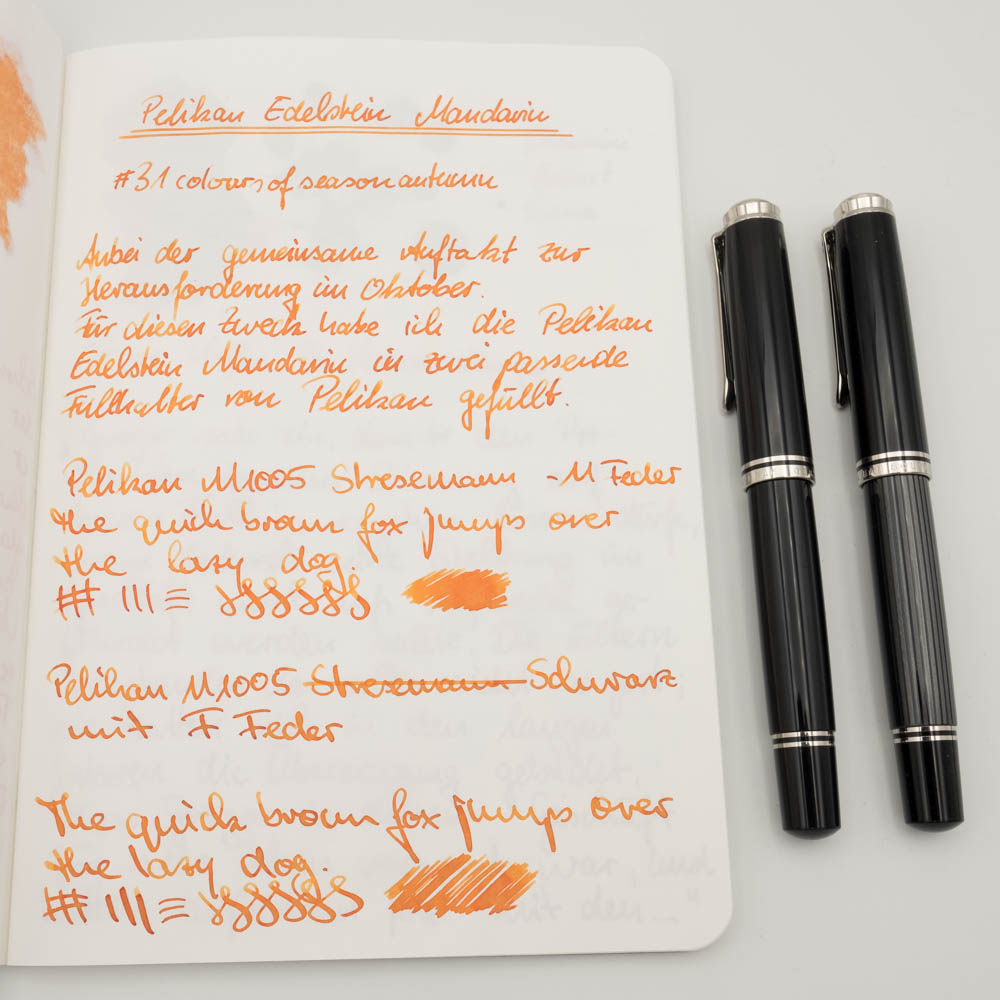 Pelikan Edelstein Mandarin
#31 colours of season autumn
Anbei der gemeinsame Auftakt zur
Herausforderung im Oktober.
Für diesen Zweck habe ich die Pelikan
Edelstein Mandarin in zwei passende
Füllhalter von Pelikan gefüllt.
Pelikan M1005 Stresemann - M Feder
the quick brown fox jumps over
the lazy dog.
Pelikan M1005 Stresemann Schwarz
mit F Feder
The quick brown fox jumps over
the lazy dog.